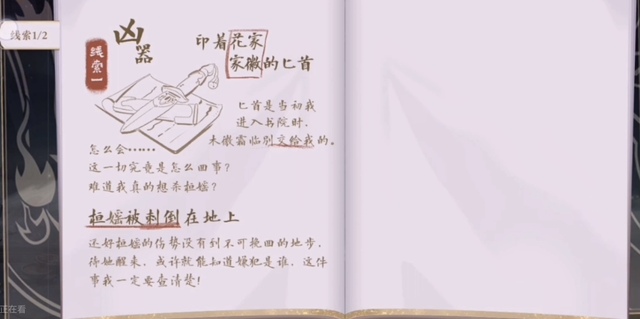 线索1/2
凶器
线索一
印着花家
家徽的匕首
匕首是当初我
进入书院时,
未徽霜临别交给我的。
怎么会……
这一切究竟是怎么回事?
难道我真的想杀桓媱?
桓媱被刺倒在地上
还好桓媱的伤势没有到不可挽回的地步,
待她醒来,或许就能知道嫌犯是谁,这件
事我一定要查清楚!
正在看